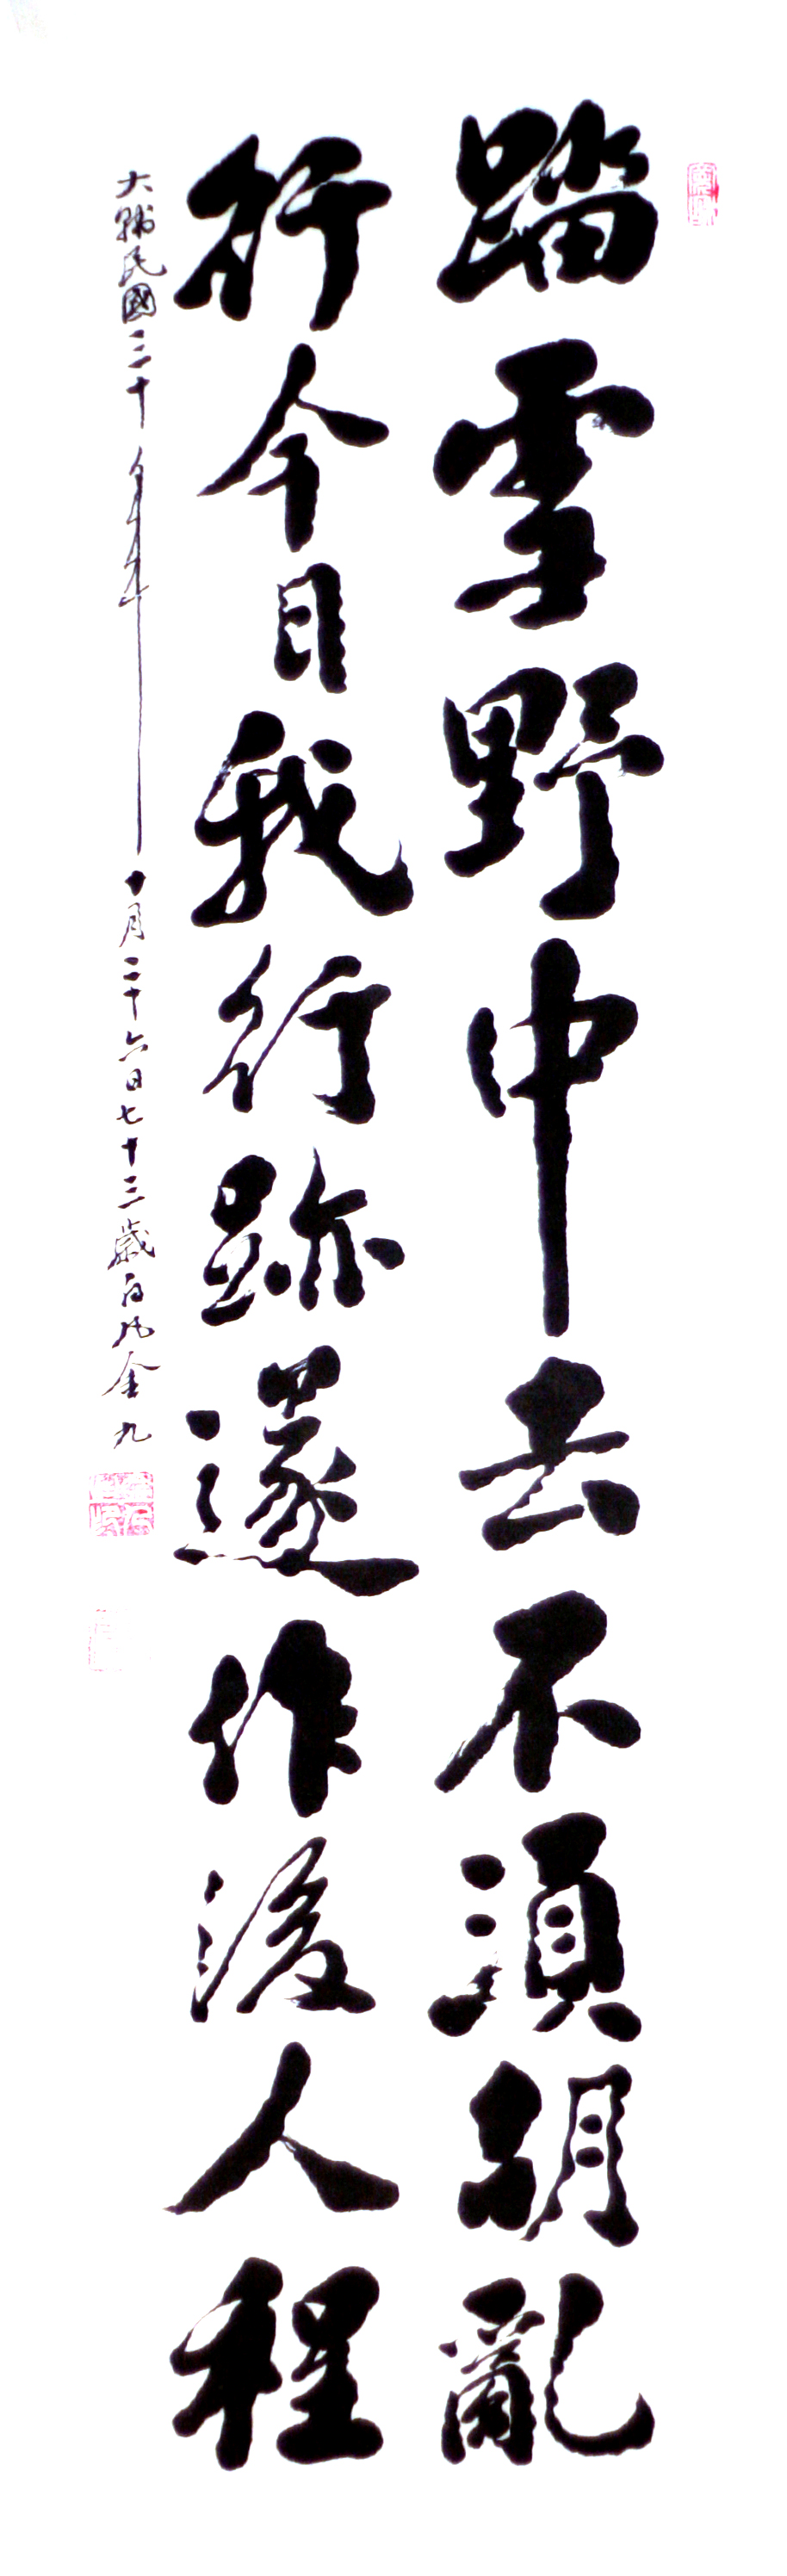 踏雪野中去不須胡亂
行今日我行跡遂作後人程
大韓民國三十年十月二十六日七十三歲白凡金九